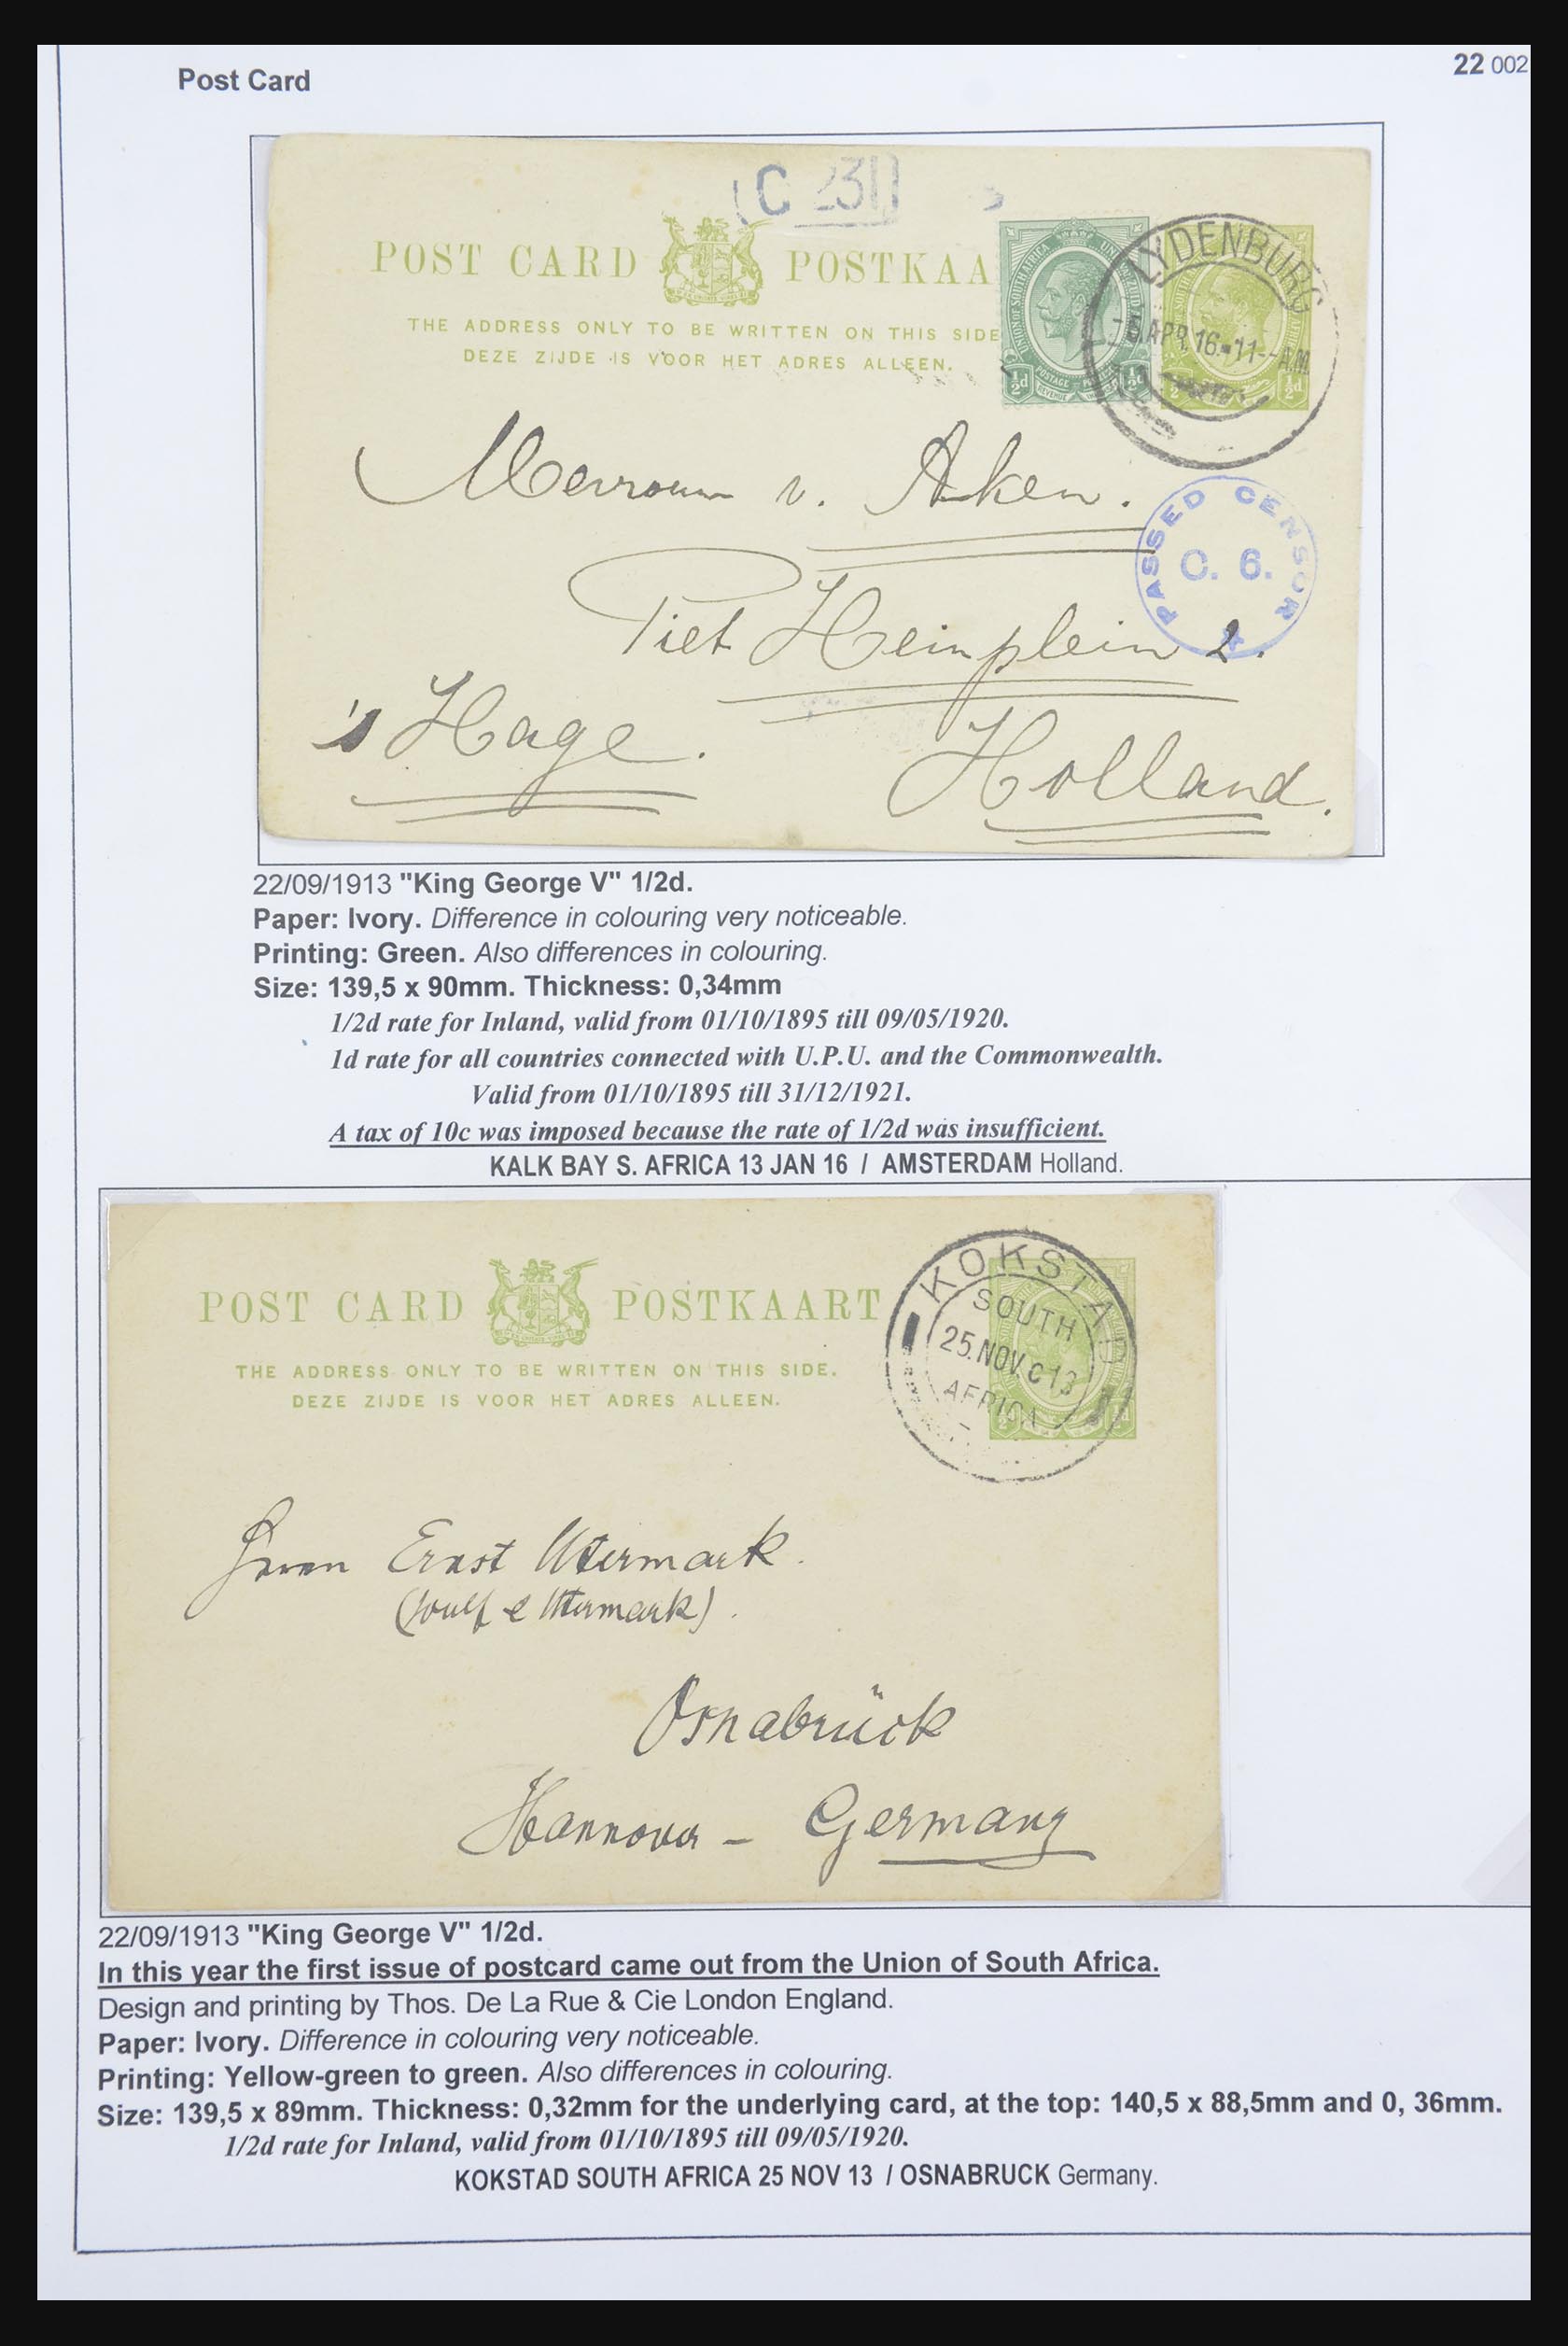 Post Card
22 002
C 231
POST CARD POSTKAA
THE ADDRESS ONLY TO BE WRITTEN ON THIS SIDE
DEZE ZIJDE IS VOOR HET ADRES ALLEEN.
UNION OF SOUTH AFRICA
½d POSTAGE REVENUE ½d
½d
LYDENBURG
5 APR. 16.-11--A.M.
v. Aken.
PASSED CENSOR
C. 6.
Piet Heinplein 2.
's Hage.
Holland.
22/09/1913 "King George V" 1/2d.
Paper: Ivory. Difference in colouring very noticeable.
Printing: Green. Also differences in colouring.
Size: 139,5 x 90mm. Thickness: 0,34mm
1/2d rate for Inland, valid from 01/10/1895 till 09/05/1920.
1d rate for all countries connected with U.P.U. and the Commonwealth.
Valid from 01/10/1895 till 31/12/1921.
A tax of 10c was imposed because the rate of 1/2d was insufficient.
KALK BAY S. AFRICA 13 JAN 16 / AMSTERDAM Holland.
POST CARD POSTKAART
THE ADDRESS ONLY TO BE WRITTEN ON THIS SIDE.
DEZE ZIJDE IS VOOR HET ADRES ALLEEN.
KOKSTAD
SOUTH
25.NOV.C13
AFRICA
Herrn Ernst Utermark.
(Wulf & Utermark).
Osnabrück
Hannover - Germany
22/09/1913 "King George V" 1/2d.
In this year the first issue of postcard came out from the Union of South Africa.
Design and printing by Thos. De La Rue & Cie London England.
Paper: Ivory. Difference in colouring very noticeable.
Printing: Yellow-green to green. Also differences in colouring.
Size: 139,5 x 89mm. Thickness: 0,32mm for the underlying card, at the top: 140,5 x 88,5mm and 0, 36mm.
1/2d rate for Inland, valid from 01/10/1895 till 09/05/1920.
KOKSTAD SOUTH AFRICA 25 NOV 13 / OSNABRUCK Germany.